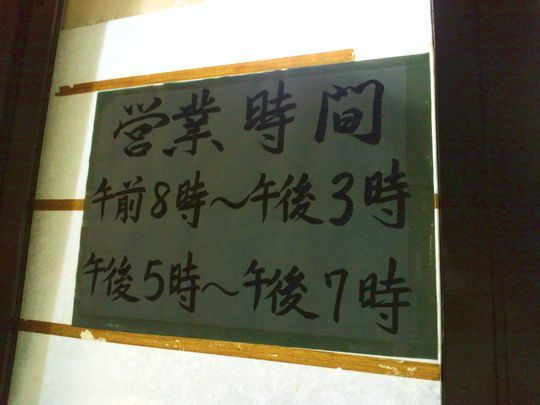 営業時間
午前8時〜午後3時
午後5時〜午後7時